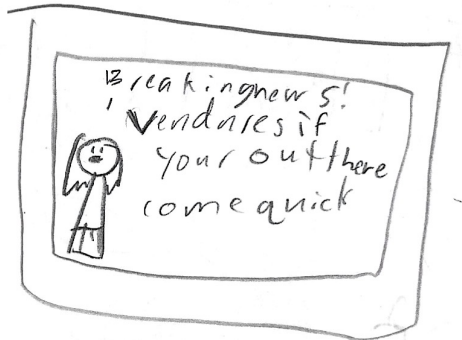 Breakingnews!
Vendnresif
your out there
come quick